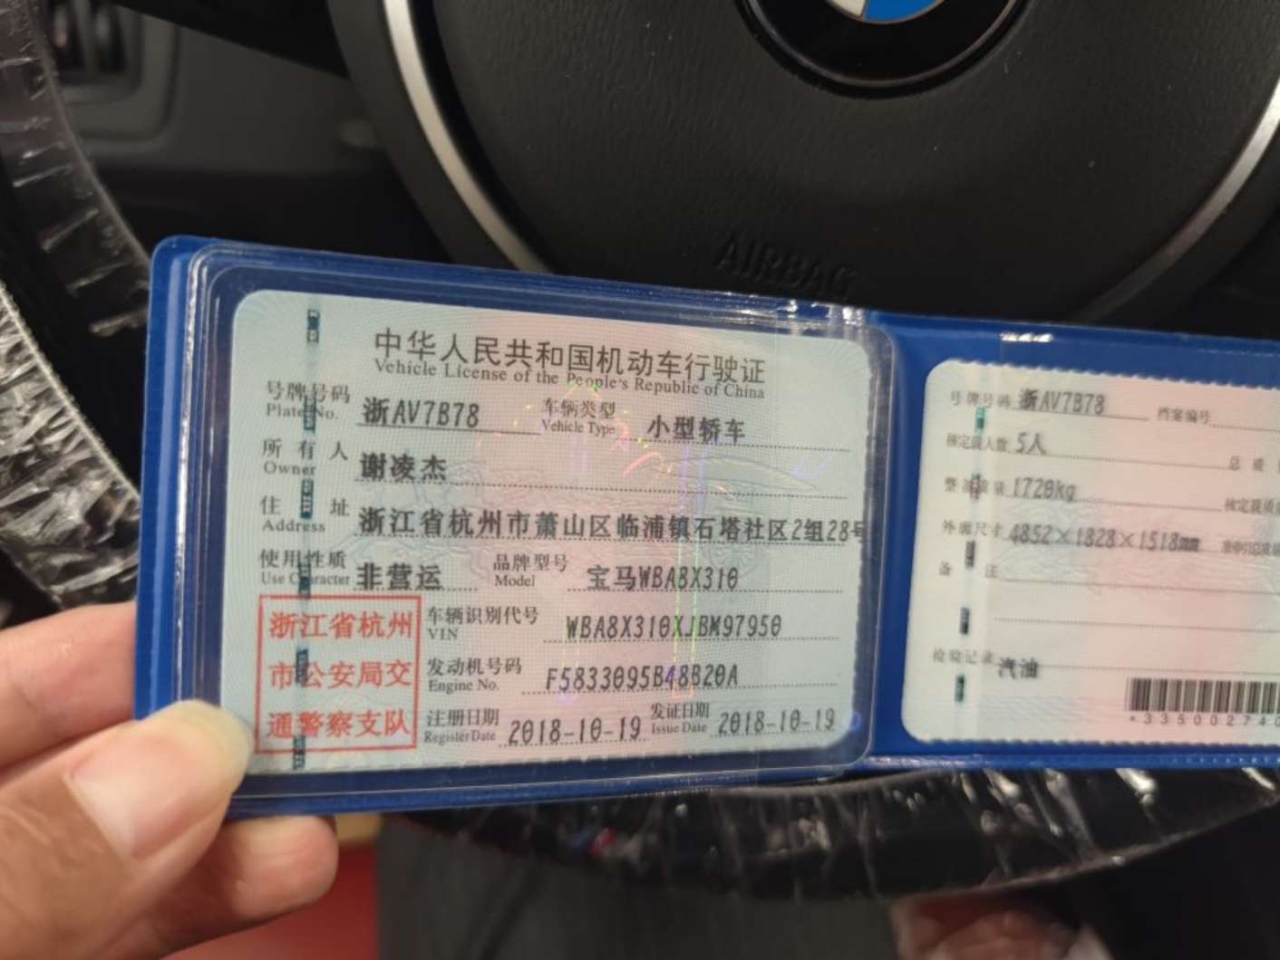 AIRBAG
中华人民共和国机动车行驶证
Vehicle License of the People's Republic of China
号牌号码 浙AV7B78 车辆类型 小型轿车
Plate No. Vehicle Type
所有人 谢凌杰
Owner
住址 浙江省杭州市萧山区临浦镇石塔社区2组28号
Address
使用性质 非营运 品牌型号 宝马WBA8X310
Use Character Model
浙江省杭州
市公安局交
通警察支队
车辆识别代号 WBA8X310XJBM97950
VIN
发动机号码 F5833095B48B20A
Engine No.
注册日期 2018-10-19 发证日期 2018-10-19
Register Date Issue Date
号牌号码 浙AV7B78 档案编号
核定载人数 5人 总质
整备质量 1720kg 核定载质
外廓尺寸 4852×1828×1518mm
备注
检验记录 汽油
*33500274